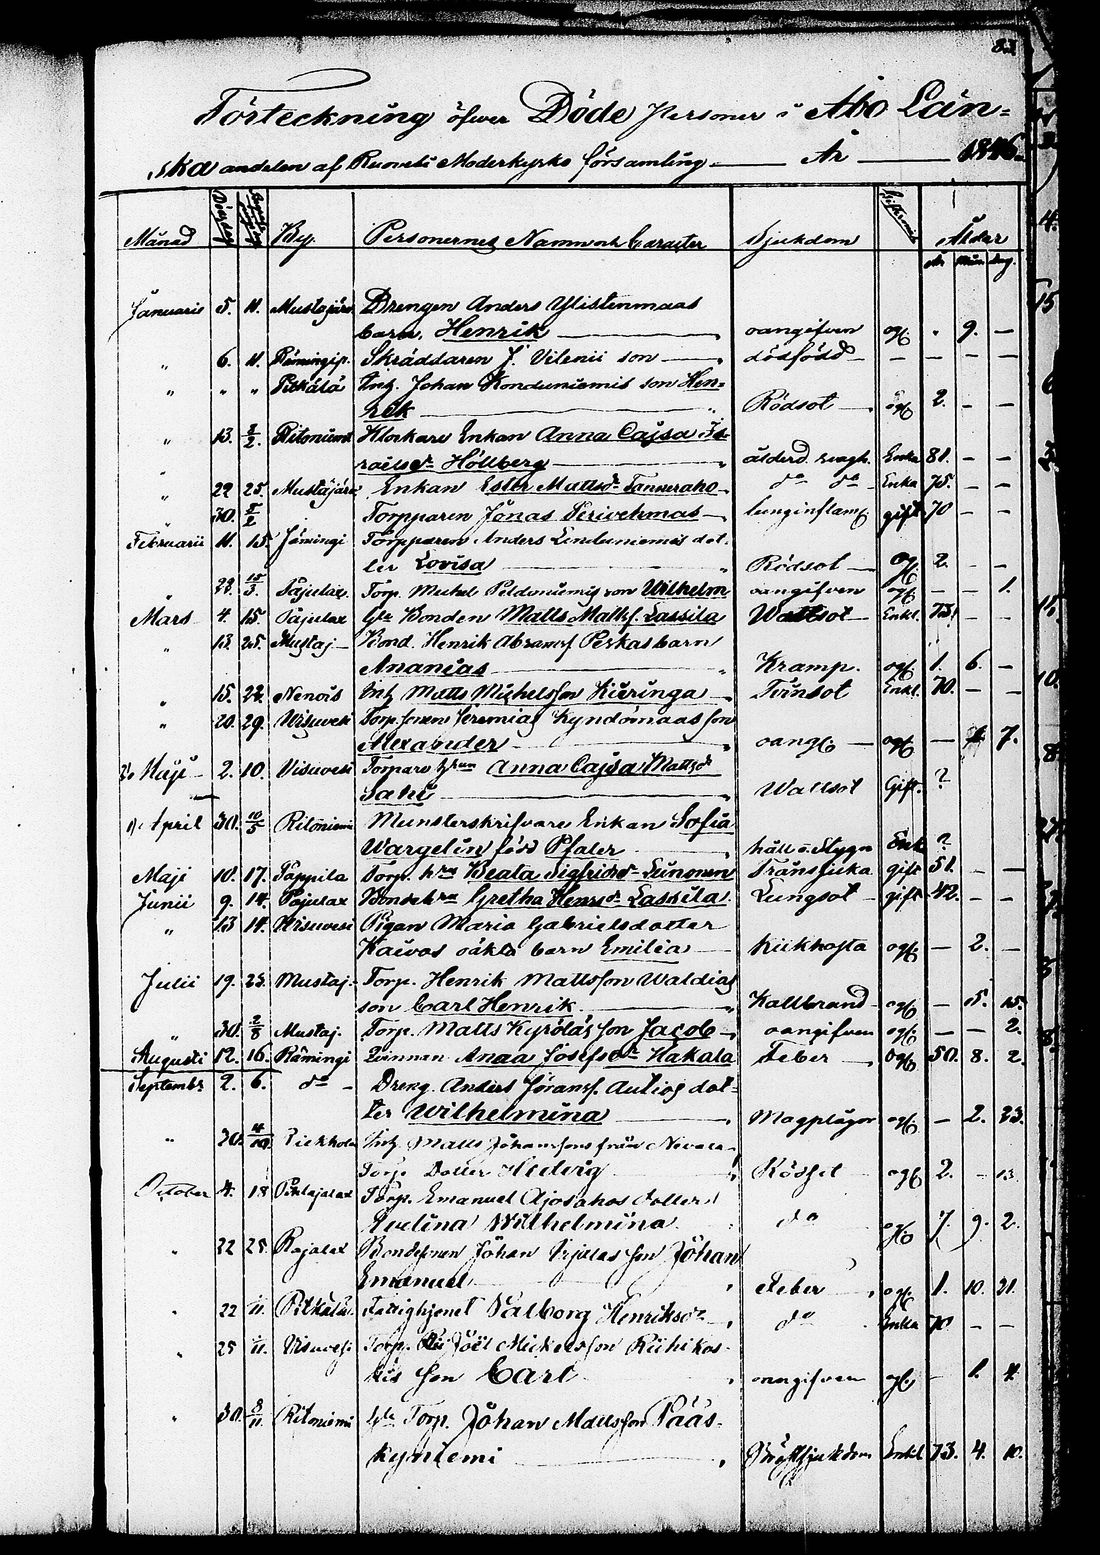 83
Förteckning öfver Döde Personer i Åbo Län-
ska andelen af Ruovesi Moderkyrko församling År 1846
Månad Dödsdag By. Personernes Namn och Caracter Sjukdom Ålder
År Mån. Dag.
Januarii 5. 11. Mustajärvi Drengen Anders Ylistenmaas
barn, Henrik oangifven ogft . 9. —
" 6. 11. Skräddaren J. Vilenii son dödfödd — — —
" " " Pitkälä Inh. Johan Konduniemis son Hen-
rik Rödsot ogft 2. — —
" 13. 1/2. Ritoniemi Klockare Enkan Anna Cajsa Is-
raelsdr Höllberg ålderd. svagh. Enka 81. — —
" 22 25. Mustajärvi Enkan Ester Mattsdr Tanneraho do do Enka 75. — —
30. Torpparen Jonas lunginflam gift 70 — —
Februarii 11. 15. Jämingi Torpparen Anders Linduniemis dot-
ter Lovisa Rödsot ogft 2. — —
" 22. 15/3. Pajulax. Torp. Michel son Wilhelm oangifven ogft — — 1.
Mars 4. 15. Pajulax Gle Bonden Matts Mattsf. Lassila Wattsot Enkl. 73.
" 13. 25. Mustaj Bond. Henrik Abramsf Perkas barn
Ananias Kramp. ogft 1. 6. —
" 15. 22. Nenois Inh. Matts Michelsson Kieringa Tvinsot Enkl. 70. — —
" 20. 29. Wisuvesi Torp. sonen Jeremias Kyndömaas son
Alexander oang ogft — 7.
Maji 2. 10. Visuvesi Torpare hun Anna Cajsa Mattsdr
Salu Wattsot Gift. ?
April 30. 10/5 Ritoniemi Munsterskrifvare Enkan Sofia
Wargelin född Pfaler håll o. Stygn Enk ?
Maji 10. 17. Pappila Torp. hun Beata Sigfridsdr Lunonen Trånsjuka gift 51. — —
Junii 9. 14. Pajulax Bonde hun Gretha Henrsdr Lassila Lungsot gift 42. — —
" 13 14. Wisuvesi Pigan Maria Gabrielsdotter
Kaivos oäkta barn Emilia kikhosta ogft — 2. —
Julii 19. 25. Mustaj. Torp. Henrik Mattsson Waldias
son Carl Henrik Kallbrand ogft — 5. 15.
" 30. 2/8 Mustaj. Torp. Matts Kyröläs son Jacob oangifven ogft — — 2.
Augusti 12. 16. Rämingi Qvinnan Anna Josefsdr Hakala Feber ogft 50. 8. 2.
Septembr 2. 6. do Dreng. Anders Göransf. Autios dot-
ter Wilhelmina Magplågor ogft — 2. 23.
" 30. 4/10. Inh. Matts Johanssons från
Torp Dotter Hedvig Rödsot ogft 2. — 13.
October 4. 18 Pihlajalax Torp. Emanuel Ajosahos dotter
Evelina Wilhelmina do ogft 7. 9. 2.
" 22 25. Pajalax Bondesonen Johan son Johan
Emanuel Feber ogft 1. 10. 21.
" 22 Pitkälä Fattighjonet Valborg Henriksdr do Enka 70 — —
" 25 Visuvesi Torp. Joël Mickelsson Riihikos-
kis son Carl oangifven ogft — 1. 4.
" 30. 8/11. Ritoniemi Gle Torp. Johan Mattsson Pääs-
kyniemi Bröstsjukdom Enkl 73. 4. 10.